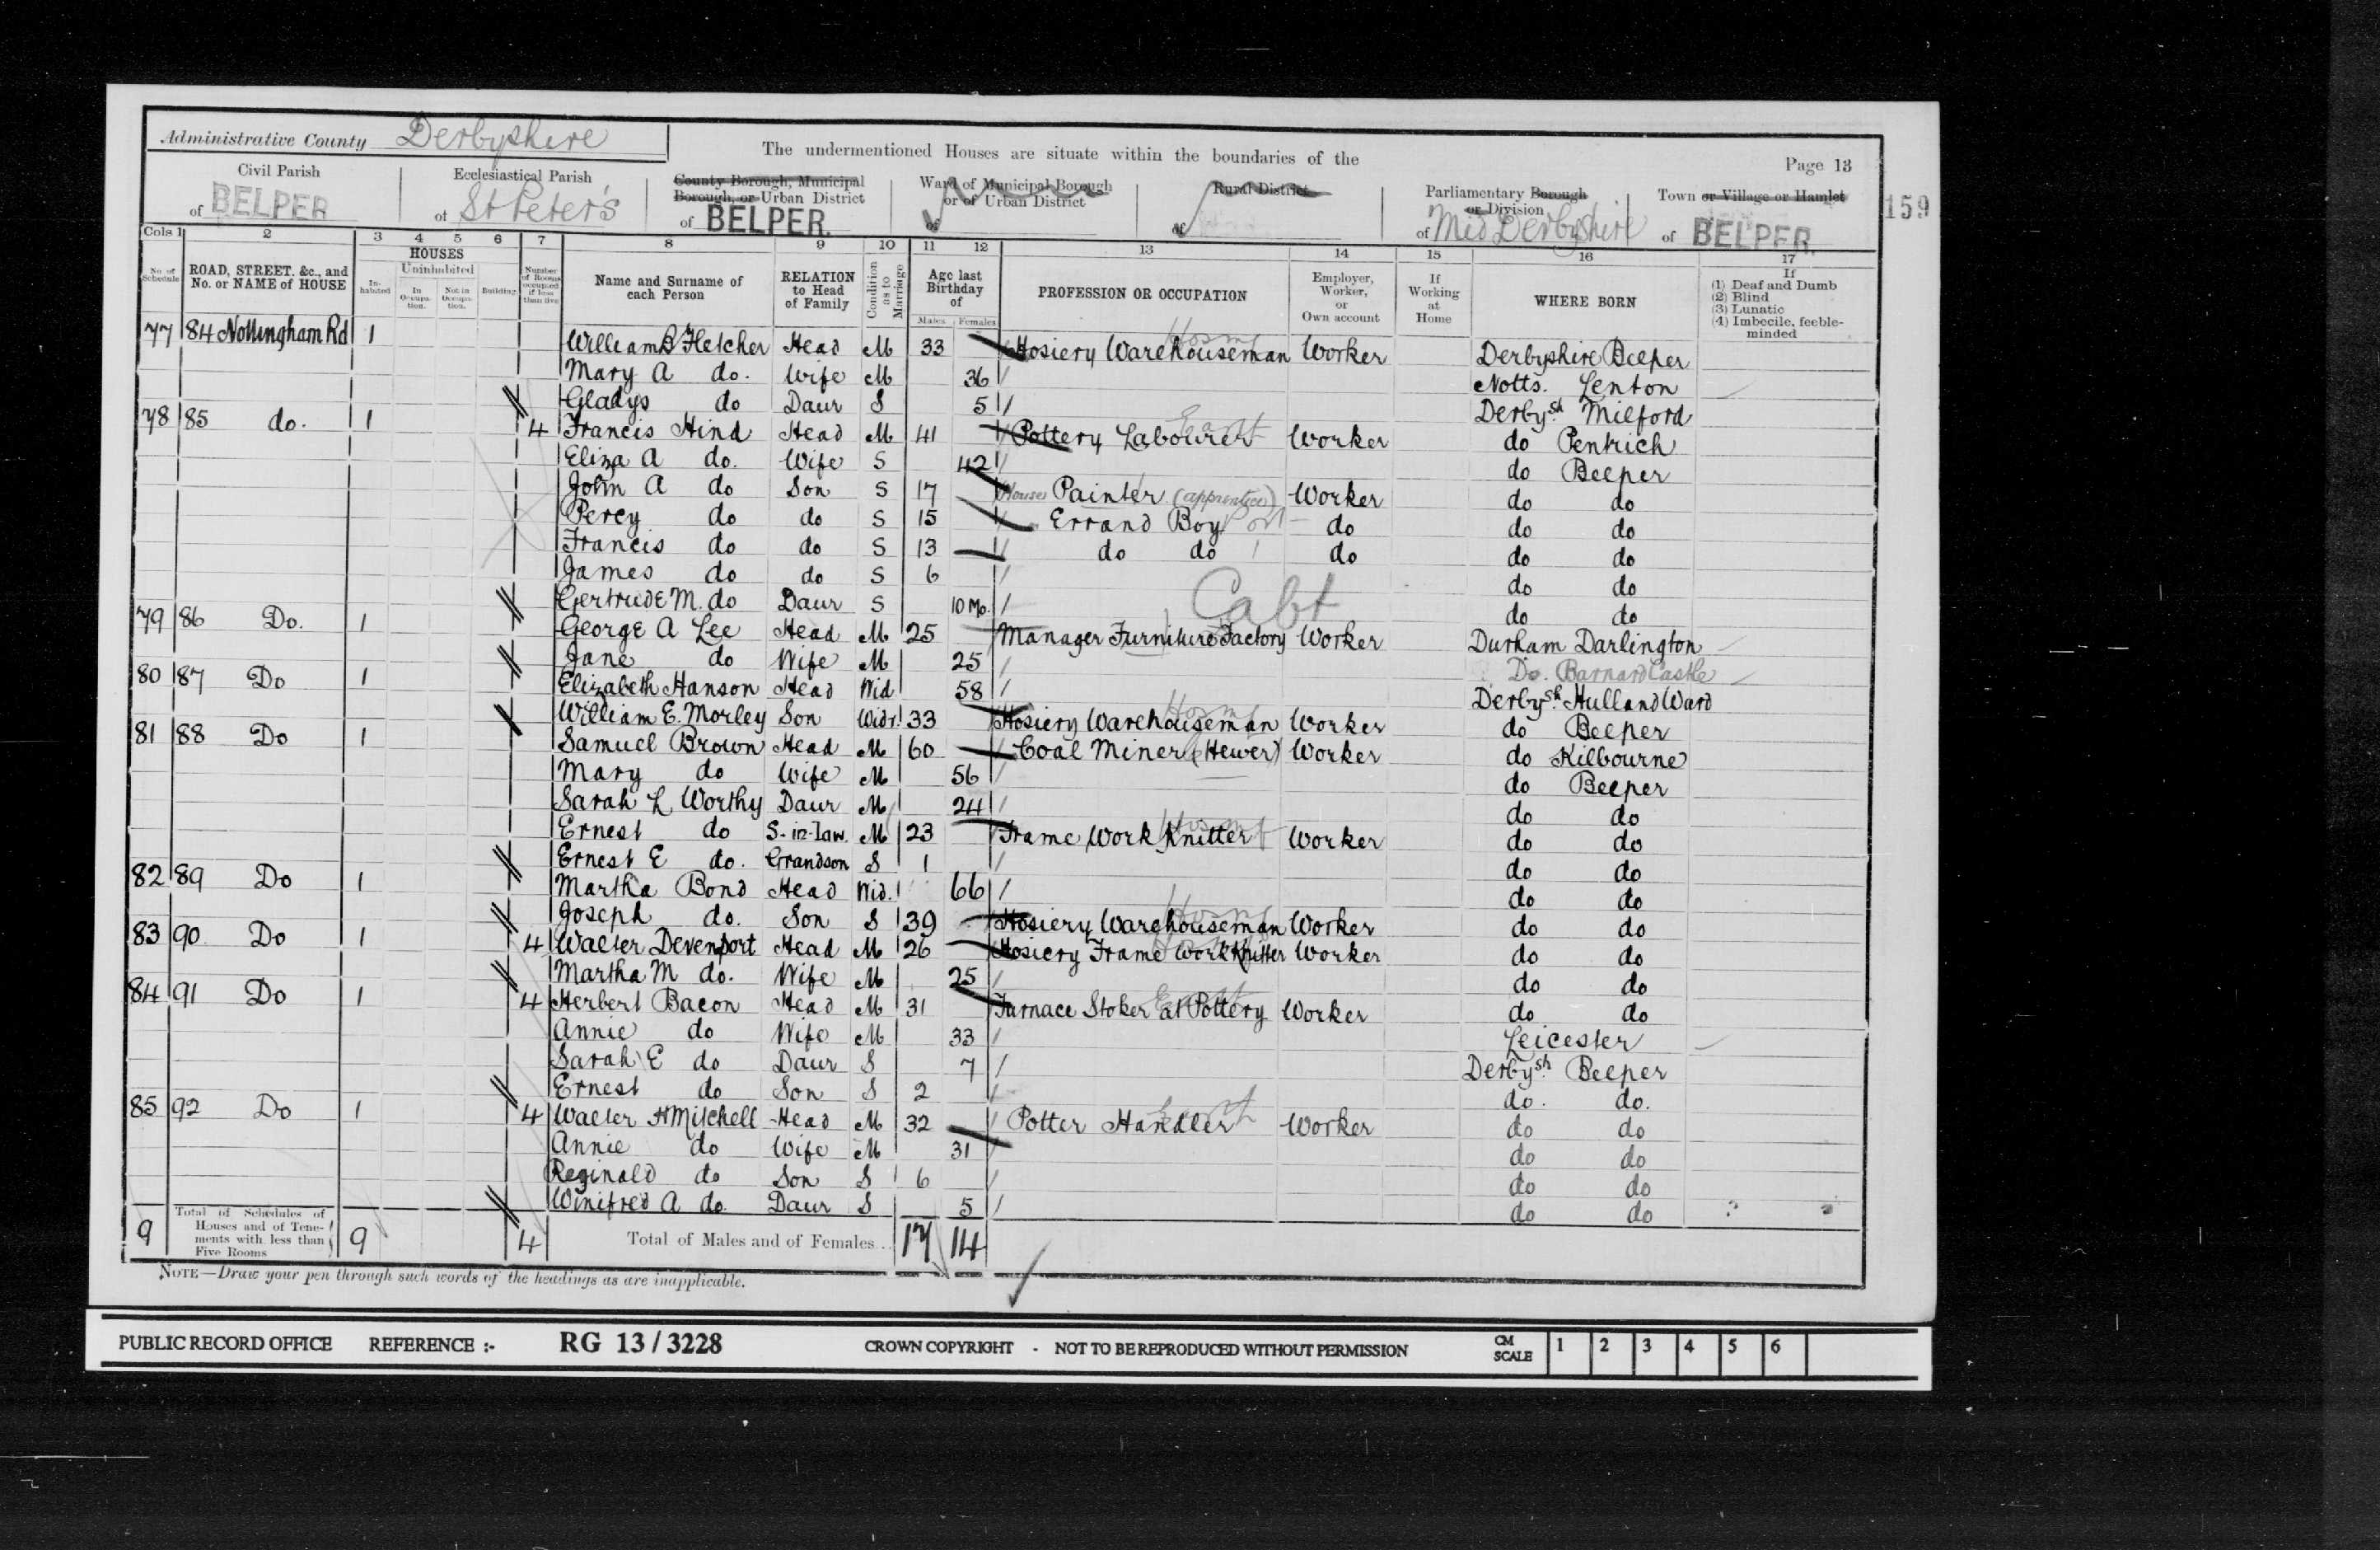 Administrative County Derbyshire
The undermentioned Houses are situate within the boundaries of the
Page 13
159
Civil Parish of BELPER
Ecclesiastical Parish of St Peter's
County Borough, Municipal Borough, or Urban District of BELPER.
Ward of Municipal Borough or of Urban District of
Rural District of
Parliamentary Borough or Division of Mid Derbyshire
Town or Village or Hamlet of BELPER
Cols 1 2 3 4 5 6 7 8 9 10 11 12 13 14 15 16 17
No. of Schedule
ROAD, STREET, &c., and No. or NAME of HOUSE
HOUSES
In-habited
Uninhabited
In Occupa-tion.
Not in Occupa-tion.
Building
Number of Rooms occupied if less than five
Name and Surname of each Person
RELATION to Head of Family
Condition as to Marriage
Age last Birthday of
Males Females
PROFESSION OR OCCUPATION
Employer, Worker, or Own account
If Working at Home
WHERE BORN
If (1) Deaf and Dumb (2) Blind (3) Lunatic (4) Imbecile, feeble-minded
77 84 Nottingham Rd 1 William B Fletcher Head M 33 Hosiery Warehouseman Worker Derbyshire Belper
Mary A do. Wife M 36 Notts. Lenton
Gladys do Daur S 5 Derbysh Milford
78 85 do. 1 4 Francis Hind Head M 41 Pottery Labourer Worker do Pentrich
Eliza A do. Wife S 42 do Belper
John A do Son S 17 House Painter (apprentice) Worker do do
Percy do do S 15 Errand Boy do do do
Francis do do S 13 do do do do do
James do do S 6 do do
Gertrude M. do Daur S 10 Mo. do do
Cabt
79 86 Do. 1 George A Lee Head M 25 Manager Furniture Factory Worker Durham Darlington
Jane do Wife M 25 Do. Barnard Castle
80 87 Do 1 Elizabeth Hanson Head Wid 58 Derbysh Hulland Ward
William E. Morley Son Widr. 33 Hosiery Warehouseman Worker do Belper
81 88 Do 1 Samuel Brown Head M 60 Coal Miner (Hewer) Worker do Kilbourne
Mary do Wife M 56 do Belper
Sarah L Worthy Daur M 24 do do
Ernest do S-in-law. M 23 Frame Work Knitter Worker do do
Ernest E do. Grandson S 1 do do
82 89 Do 1 Martha Bond Head Wid. 66 do do
Joseph do. Son S 39 Hosiery Warehouseman Worker do do
83 90 Do 1 4 Walter Devenport Head M 26 Hosiery Frame Work Knitter Worker do do
Martha M do. Wife M 25 do do
84 91 Do 1 4 Herbert Bacon Head M 31 Furnace Stoker at Pottery Worker do do
Annie do Wife M 33 Leicester
Sarah E do Daur S 7 Derbysh Belper
Ernest do Son S 2 do. do.
85 92 Do 1 4 Walter H Mitchell Head M 32 Potter Handler Worker do do
Annie do Wife M 31 do do
Reginald do Son S 6 do do
Winifred A do. Daur S 5 do do
9 Total of Schedules of Houses and of Tene-ments with less than Five Rooms 9 4 Total of Males and of Females... 17 14
NOTE—Draw your pen through such words of the headings as are inapplicable.
PUBLIC RECORD OFFICE REFERENCE :- RG 13 / 3228 CROWN COPYRIGHT - NOT TO BE REPRODUCED WITHOUT PERMISSION CM SCALE 1 2 3 4 5 6